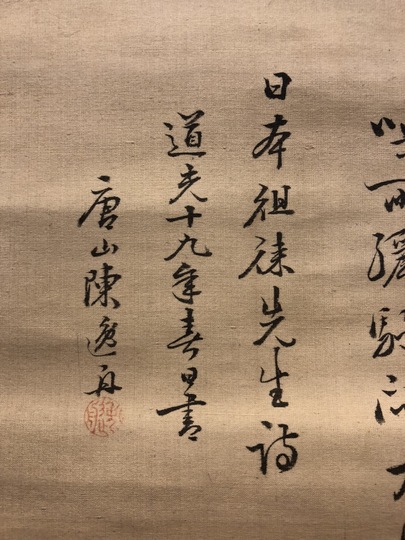 驪駒
日本徂徠先生詩
道光十九年春日書
唐山陳逸舟